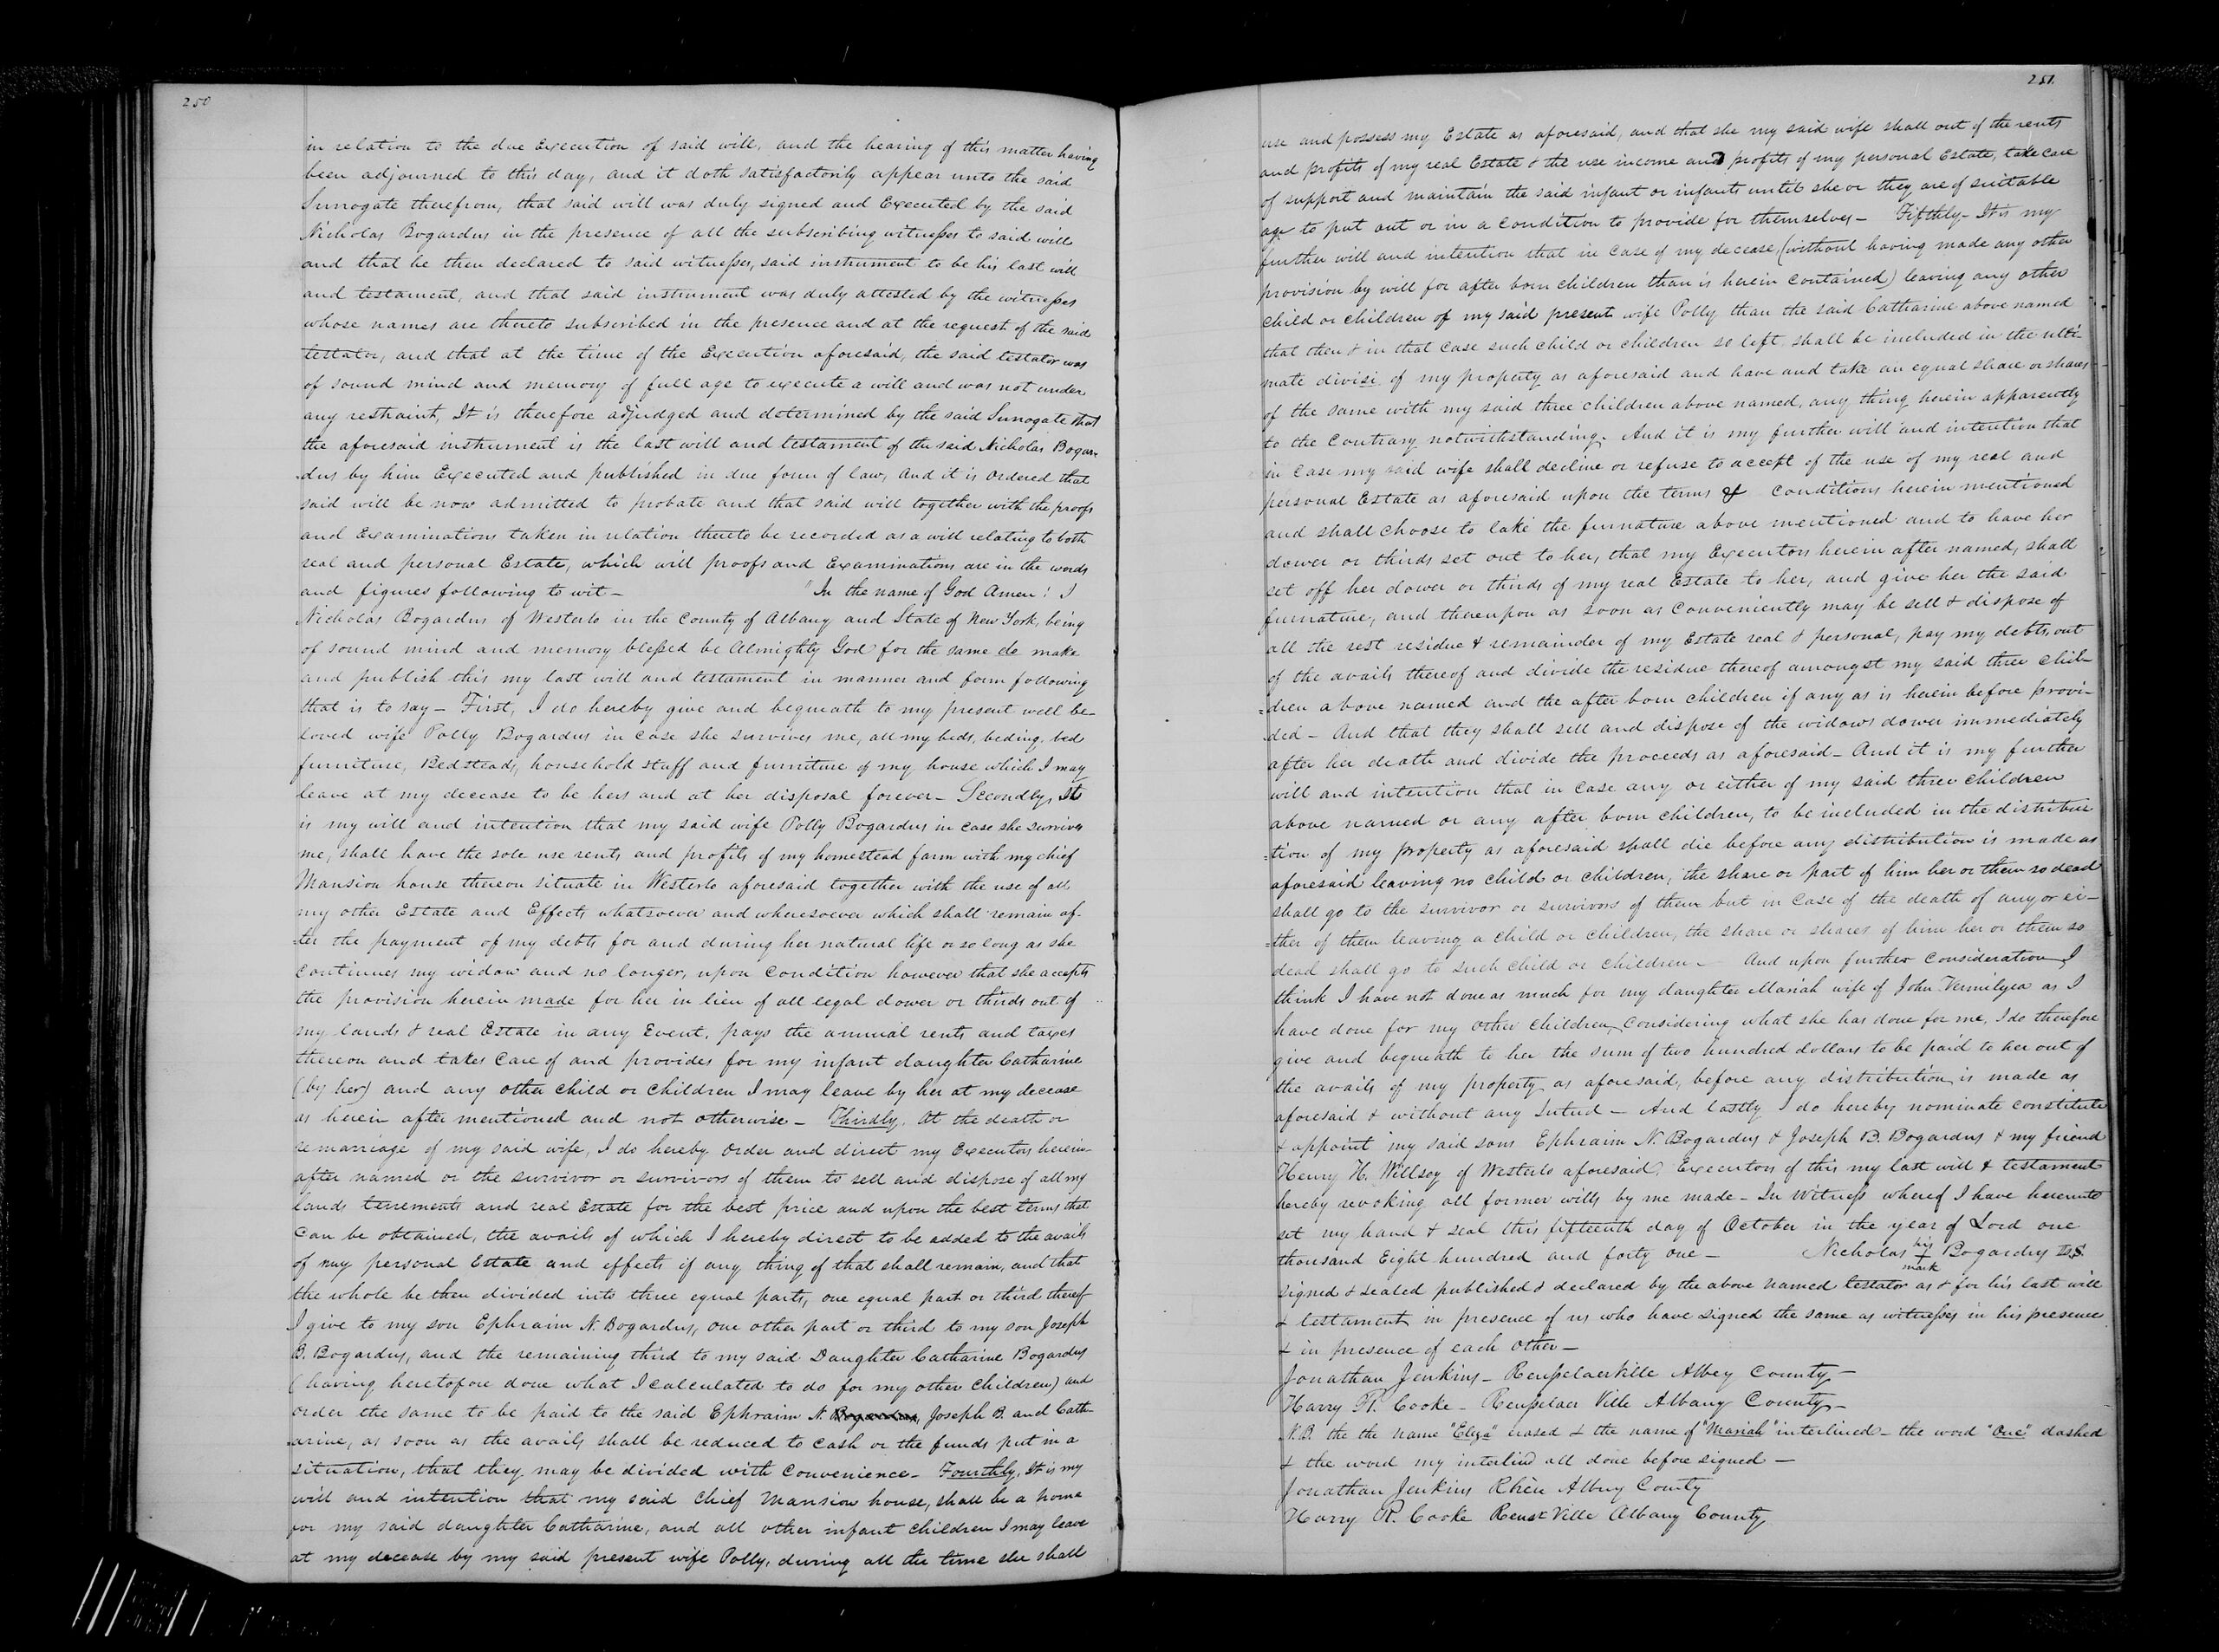 250
in relation to the due Execution of said will, and the hearing of this matter having
been adjourned to this day, and it doth satisfactorily appear unto the said
Surrogate therefrom, that said will was duly signed and Executed by the said
Nicholas Bogardus in the presence of all the subscribing witnesses to said will
and that he then declared to said witnesses, said instrument to be his last will
and testament, and that said instrument was duly attested by the witnesses
whose names are thereto subscribed in the presence and at the request of the said
testator, and that at the time of the Execution aforesaid, the said testator was
of sound mind and memory of full age to execute a will and was not under
any restraint, It is therefore adjudged and determined by the said Surrogate that
the aforesaid instrument is the last will and testament of the said Nicholas Bogar-
-dus by him Executed and published in due form of law, and it is ordered that
said will be now admitted to probate and that said will together with the proofs
and Examinations taken in relation thereto be recorded as a will relating to both
real and personal Estate, which will proofs and Examinations are in the words
and figures following to wit— "In the name of God Amen! I
Nicholas Bogardus of Westerlo in the County of Albany and State of New York, being
of sound mind and memory blessed be Almighty God for the same do make
and publish this my last will and testament in manner and form following
that is to say— First, I do hereby give and bequeath to my present well be-
loved wife Polly Bogardus in case she survives me, all my beds, beding, bed
furniture, Bedsteads, household stuff and furniture of my house which I may
leave at my decease to be hers and at her disposal forever— Secondly, It
is my will and intention that my said wife Polly Bogardus in case she survives
me, shall have the sole use rents and profits of my homestead farm with my chief
Mansion house thereon situate in Westerlo aforesaid together with the use of all
my other Estate and Effects whatsoever and wheresoever which shall remain af-
-ter the payment of my debts for and during her natural life or so long as she
continues my widow and no longer, upon condition however that she accepts
the provision herein made for her in lieu of all legal dower or thirds out of
my lands & real Estate in any Event, pays the annual rents and taxes
thereon and takes Care of and provides for my infant daughter Catharine
(by her) and any other child or children I may leave by her at my decease
as herein after mentioned and not otherwise— Thirdly. At the death or
remarriage of my said wife, I do hereby order and direct my Executors herein
after named or the survivor or survivors of them to sell and dispose of all my
lands tenements and real Estate for the best price and upon the best terms that
can be obtained, the avails of which I hereby direct to be added to the avails
of my personal Estate and effects if any thing of that shall remain, and that
the whole be then divided into three equal parts, one equal part or third thereof
I give to my son Ephraim N. Bogardus, one other part or third to my son Joseph
B. Bogardus, and the remaining third to my said Daughter Catharine Bogardus
(having heretofore done what I calculated to do for my other children) and
order the same to be paid to the said Ephraim N. Bogardus, Joseph B. and Cath-
-arine, as soon as the avails shall be reduced to cash or the funds put in a
situation, that they may be divided with convenience— Fourthly, It is my
will and intention that my said chief mansion house, shall be a home
for my said daughter Catharine, and all other infant children I may leave
at my decease by my said present wife Polly, during all the time she shall
251.
use and possess my Estate as aforesaid, and that she my said wife shall out of the rents
and profits of my real Estate & the use income and profits of my personal Estate, take care
of support and maintain the said infant or infants until she or they are of suitable
age to put out or in a condition to provide for themselves— Fifthly— It is my
further will and intention that in case of my decease, (without having made any other
provision by will for after born children than is herein contained) leaving any other
child or children of my said present wife Polly than the said Catharine above named
that then & in that case such child or children so left shall be included in the ulti-
mate divisi of my property as aforesaid and have and take an equal share or shares
of the same with my said three children above named, any thing herein apparently
to the contrary notwithstanding. And it is my further will and intention that
in case my said wife shall decline or refuse to accept of the use of my real and
personal Estate as aforesaid upon the terms & conditions herein mentioned
and shall choose to take the furnature above mentioned and to have her
dower or thirds set out to her, that my Executors herein after named, shall
set off her dower or thirds of my real Estate to her, and give her the said
furnature, and thereupon as soon as conveniently may be sell & dispose of
all the rest residue & remainder of my Estate real & personal, pay my debts, out
of the avails thereof and divide the residue thereof amongst my said three chil-
=dren above named and the after born children if any as is herein before provi-
-ded— And that they shall sell and dispose of the widows dower immediately
after her death and divide the proceeds as aforesaid— And it is my further
will and intention that in case any or either of my said three children
above named or any after born children, to be included in the distribu
=tion of my property as aforesaid shall die before any distribution is made as
aforesaid leaving no child or children, the share or part of him her or them so dead
shall go to the survivor or survivors of them but in case of the death of any or ei-
=ther of them leaving a child or children, the share or shares of him her or them so
dead shall go to such child or children— And upon further consideration I
think I have not done as much for my daughter Mariah wife of John Vermilyea as I
have done for my other children, considering what she has done for me, I do therefore
give and bequeath to her the sum of two hundred dollars to be paid to her out of
the avails of my property as aforesaid, before any distribution is made as
aforesaid & without any — And lastly I do hereby nominate constitute
& appoint my said sons Ephraim N. Bogardus & Joseph B. Bogardus & my friend
Henry H. Willsey of Westerlo aforesaid, Executors of this my last will & testament
hereby revoking all former wills by me made— In Witness whereof I have hereunto
set my hand & seal this fifteenth day of October in the year of Lord one
thousand Eight hundred and forty one— Nicholas his + mark Bogardus L.S.
signed & sealed published & declared by the above named testator as & for his last will
& testament in presence of us who have signed the same as witnesses in his presence
& in presence of each other—
Jonathan Jenkins— Rensselaerville Albey County—
Harry R. Cooke— Rensselaer Ville Albany County—
N.B. the the name "Eliza" erased & the name of "Mariah" interlined— the word "One" dashed
& the word my interlind all done before signed—
Jonathan Jenkins Albny County
Harry R. Cooke Rensr Ville Albany County